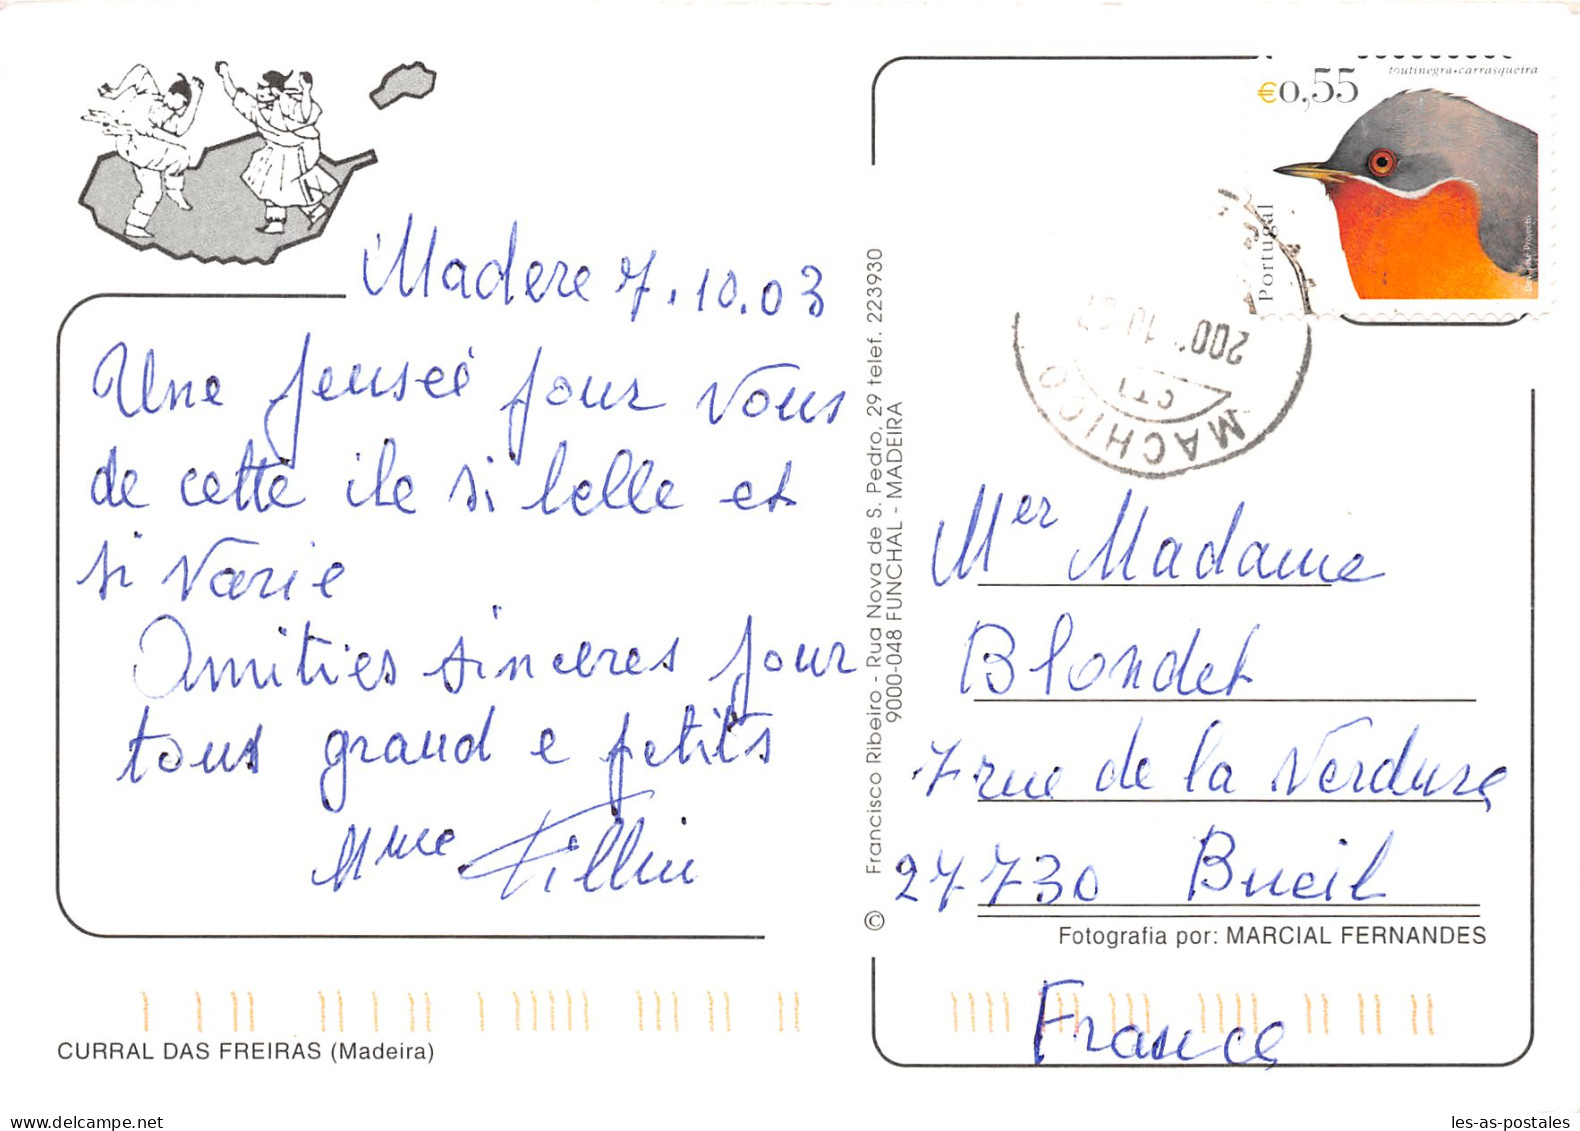 Madere 7.10.03
Une penseé pour vous
de cette ile si belle et
si varie
Amitiés sinceres pour
tous grand e petits
Mme
CURRAL DAS FREIRAS (Madeira)
© Francisco Ribeiro - Rua Nova de S. Pedro, 29 telef. 223930
9000-048 FUNCHAL - MADEIRA
toutinegra•carrasqueira
€0,55
Portugal
MACHICO
CTT
Mer Madame
Blondet
7 rue de la Verdure
27730 Bueil
Fotografia por: MARCIAL FERNANDES
France
delcampe.net
les-as-postales